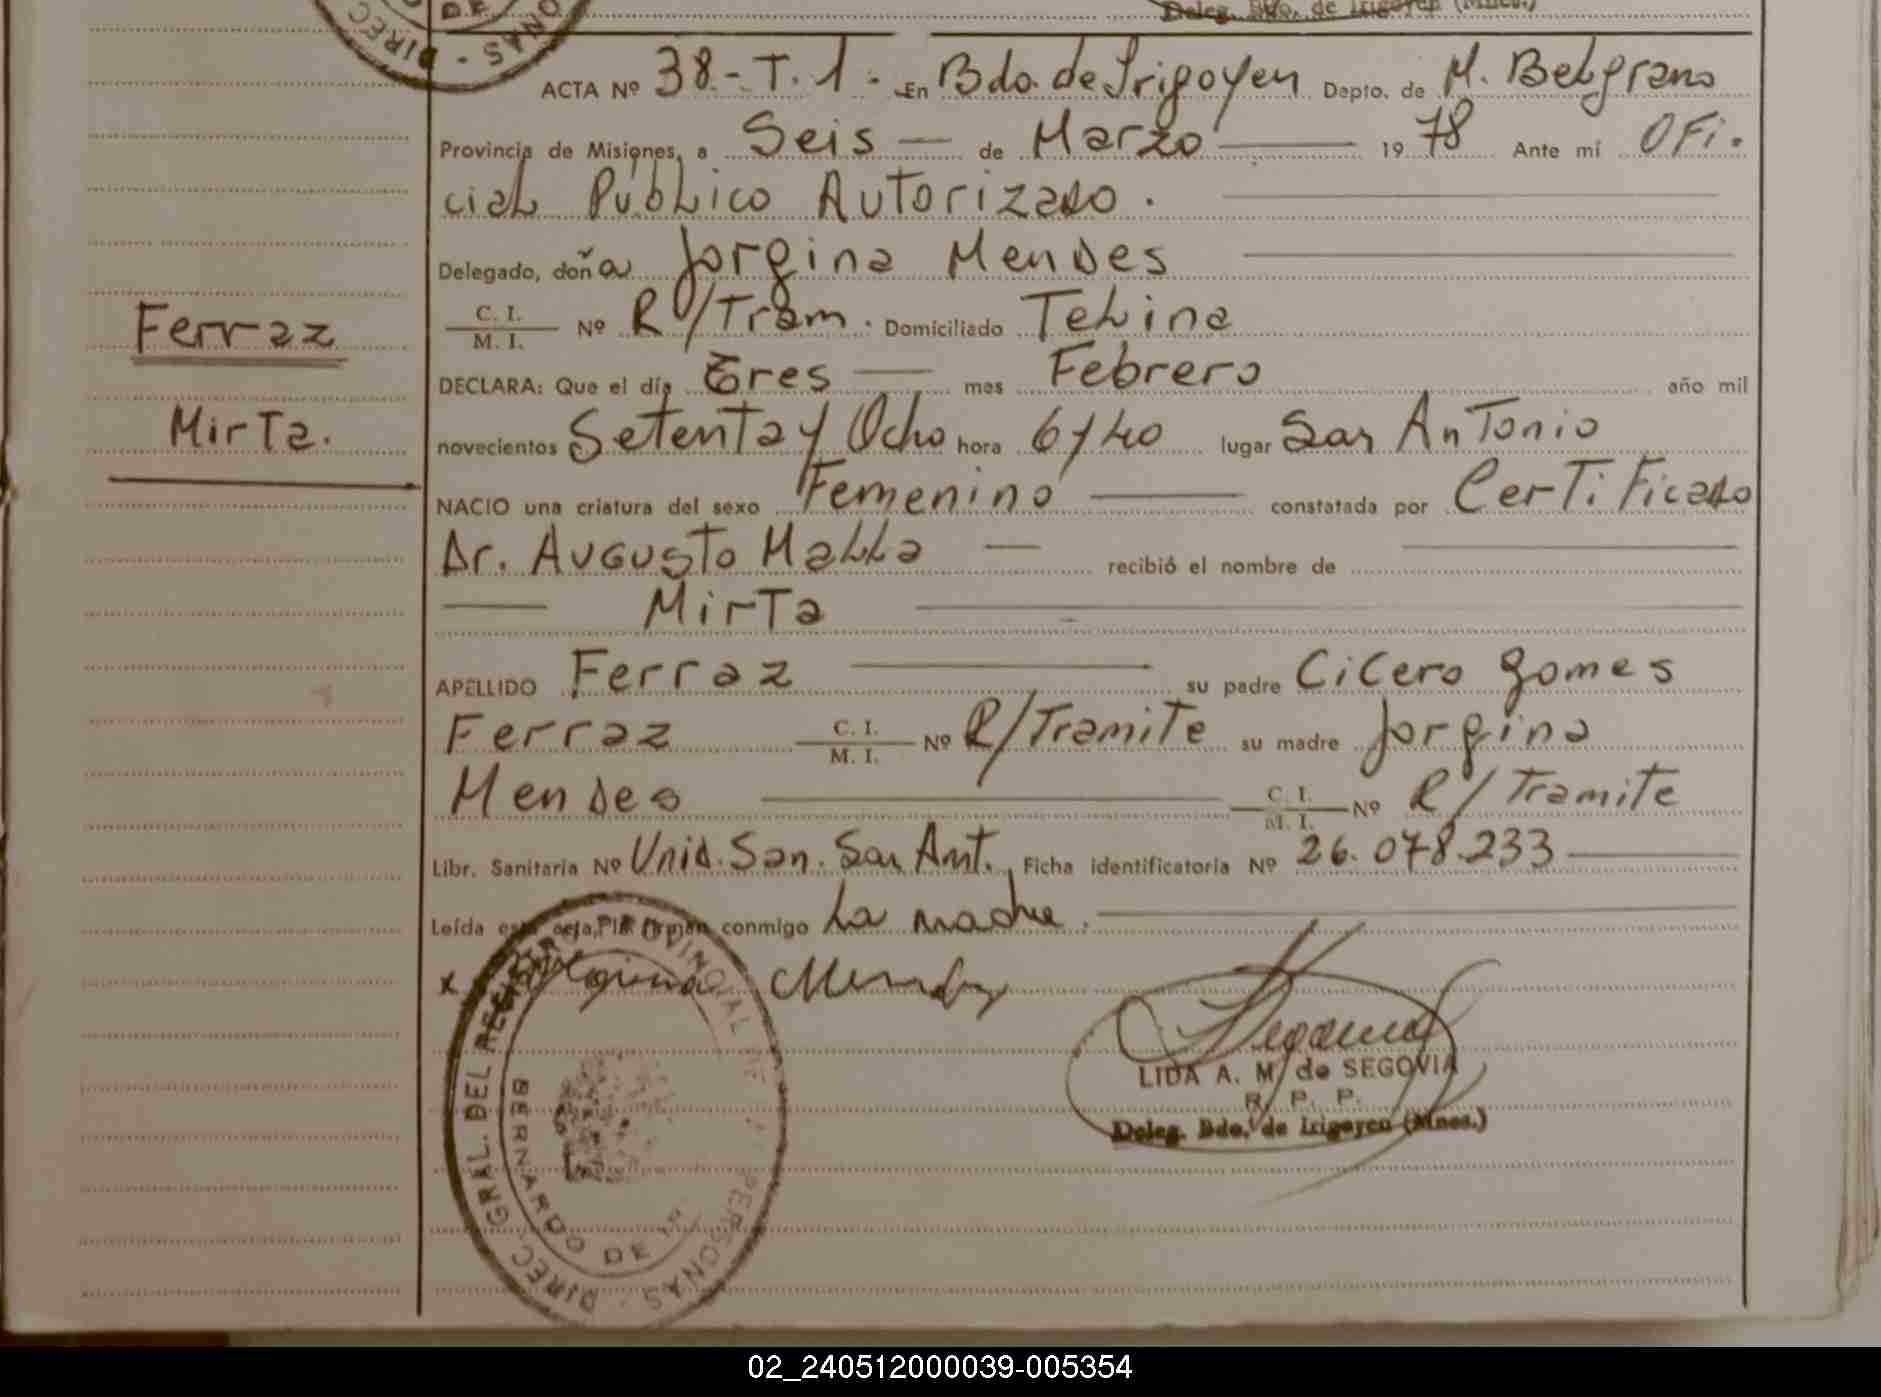 DIREC
DE
ONAS -
Deleg. Bdo. de Irigoyen (Mnes.)
ACTA Nº 38 - T. 1 - En Bdo. de Irigoyen Depto. de M. Belgrano
Provincia de Misiones, a Seis — de Marzo 1978 Ante mí Ofi-
cial Público Autorizado.
Delegado, doña Jorgina Mendes
C. I. / M. I. Nº R/Tram. Domiciliado Telina
DECLARA: Que el día Tres — mes Febrero año mil
novecientos Setenta y Ocho hora 6 y 40 lugar San Antonio
Ferraz
NACIO una criatura del sexo Femenino constatada por Certificado
Mirta.
Dr. Augusto Malla — recibió el nombre de
Mirta
APELLIDO Ferraz su padre Cicero Gomes
Ferraz C. I. / M. I. Nº R/Tramite su madre Jorgina
Mendes C. I. / M. I. Nº R/Tramite
Libr. Sanitaria Nº Unid. San. San Ant. Ficha identificatoria Nº 26.078.233
Leída esta acta, la firman conmigo La madre.
x Jorgina Mendes
DIREC. GRAL. DEL REGISTRO PROVINCIAL DE PERSONAS
BERNARDO DE
LIDA A. M. de SEGOVIA
R. P. P.
Deleg. Bdo. de Irigoyen (Mnes.)
02_240512000039-005354